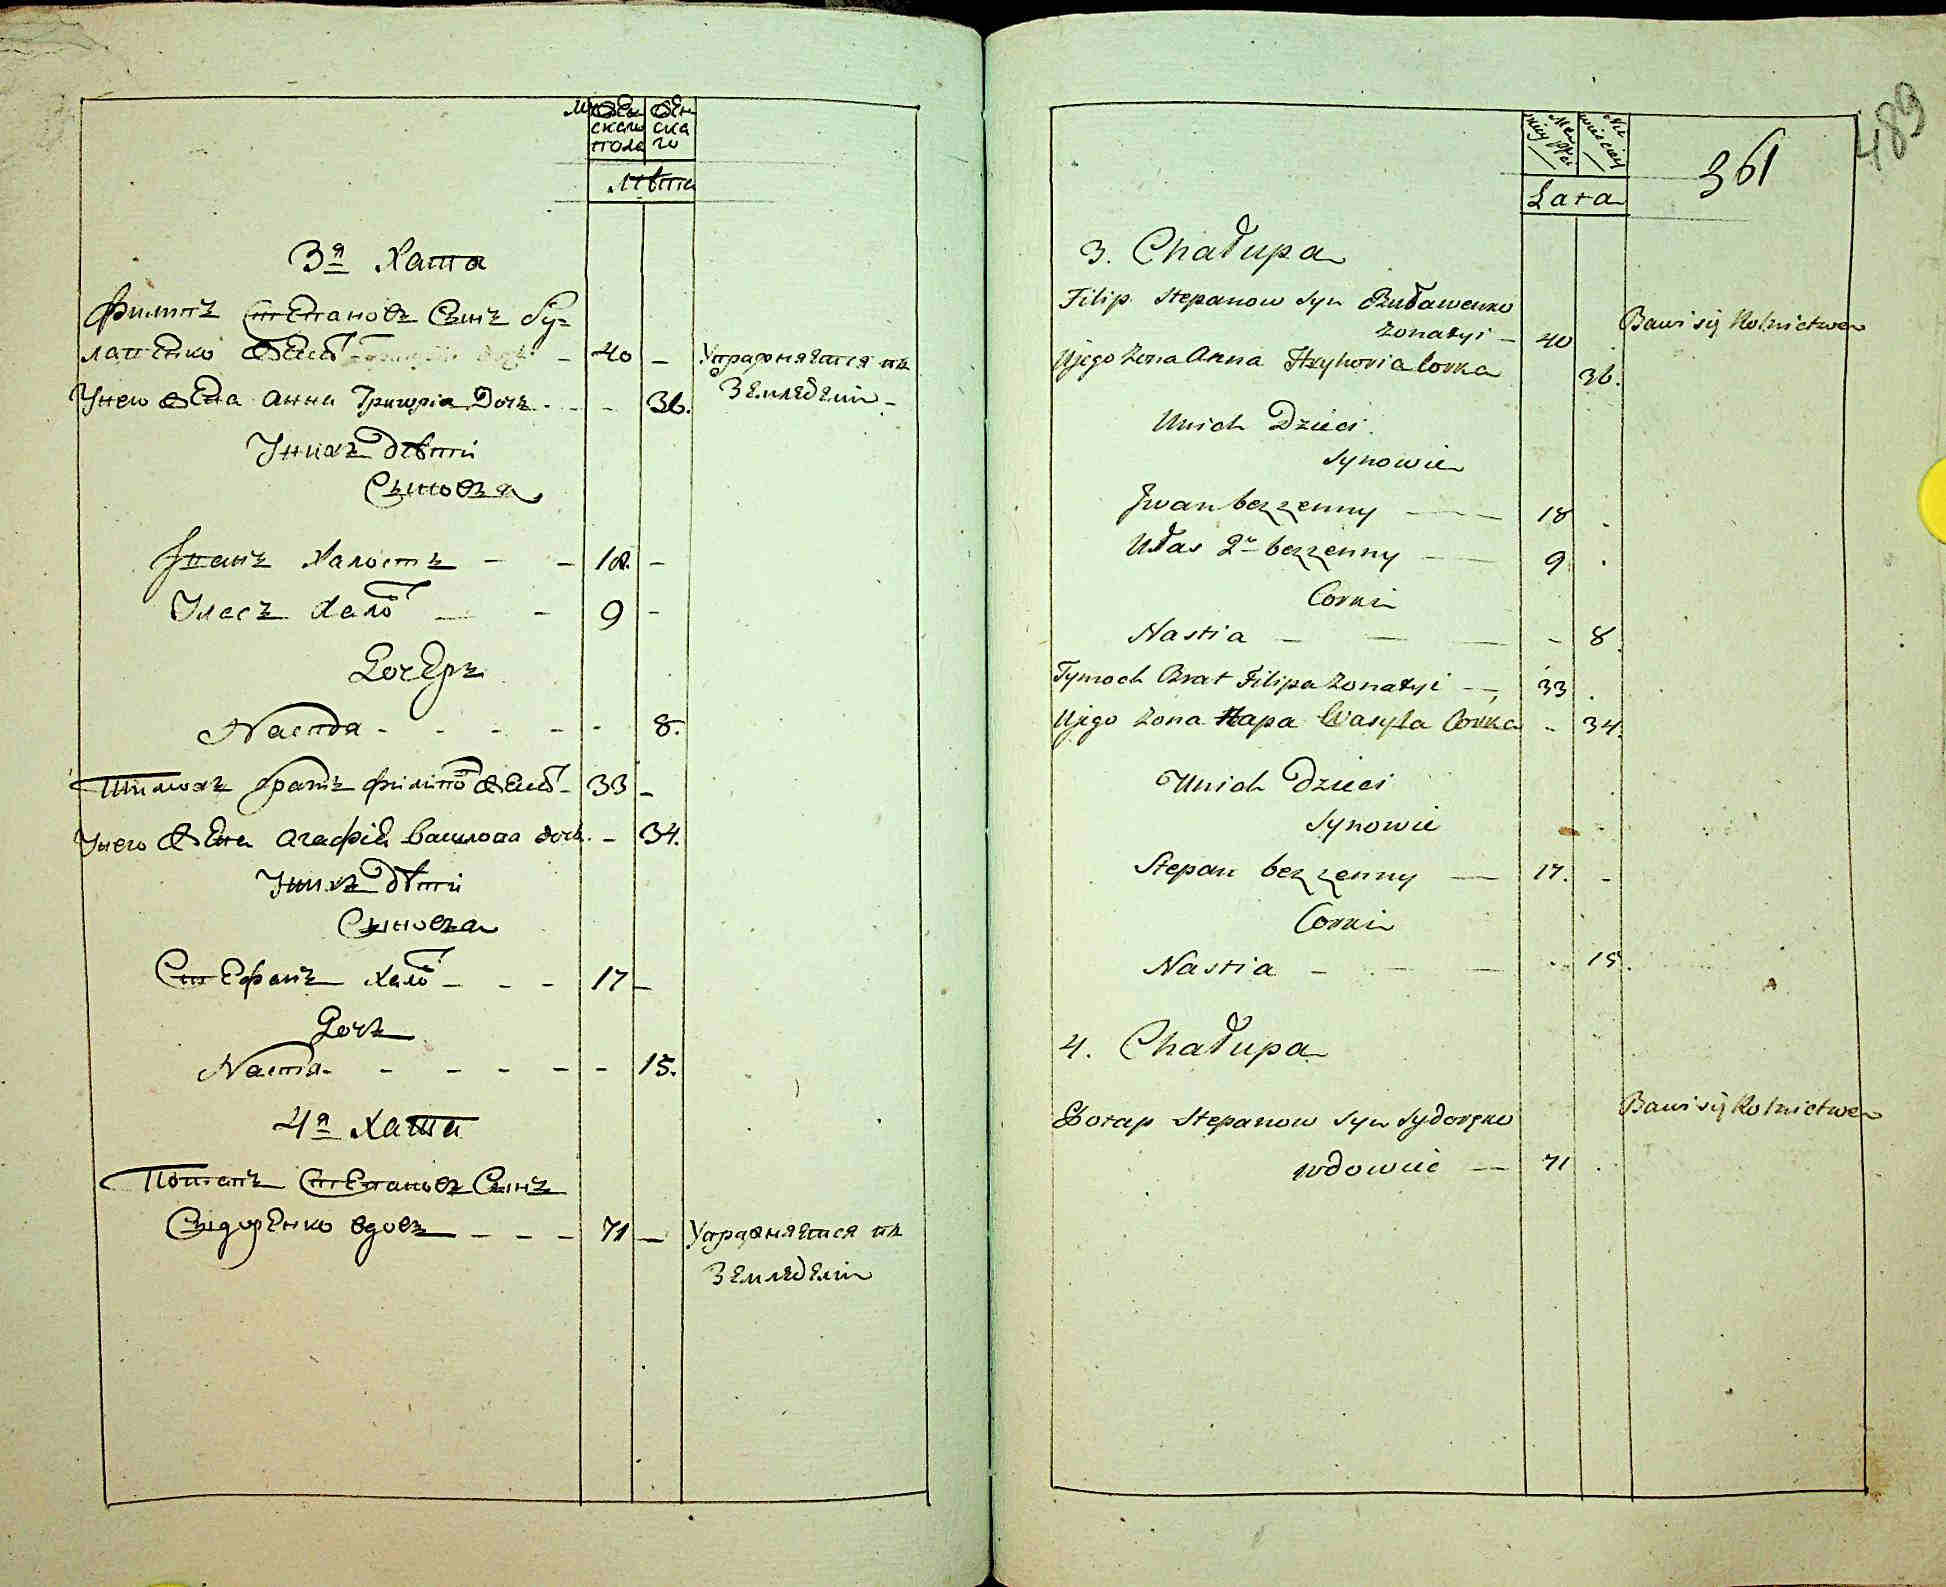 Мужескаго пола
Женскаго
Лѣта
3я Хата
Филипъ Степановъ Сынъ Бу=
лавенко жена͏т - 40 - Упражняется въ
Унего жена Анна Григорія Дочь - - 36. Земледеліи -
Унихъ дѣти
Сыновья
Іванъ Халостъ - - 18. -
Уласъ Хало - - 9 -
Дочерь
Настя - - - - - 8.
Тимохъ братъ Филипо жена͏т - 33 -
Унего жена Агафія Василова дочь - 34.
Унихъ дѣти
Сыновья
Стефанъ Хало - - - 17 -
Дочь
Настя - - - - - 15.
4я Хата
Потапъ Степановъ Сынъ
Сыдоренко вдовъ - - - 71 - Упражняется въ
Земледеліи
489
361
Lata
3. Chałupa
Filip Stepanow Syn Buławeńko
żonatyi - 40 Bawi się Rolnictwem
Ujego żona Anna Hryhoria Corka 36.
Unich Dzieci
Synowie
Jwan bezżenny - 18 .
Ułas 2i bezżenny - 9 .
Corki
Nastia - - - - 8
Tymoch Brat Filipa żonatyi - 33 .
Ujego żona Hapa Wasyla Corka - 34.
Unich Dzieci
Synowie
Stepan bezżenny - 17. -
Corki
Nastia - - - 15.
4. Chałupa
Potap Stepanow Syn Sydoręko Bawi się Rolnictwem
wdowiec - 71 .